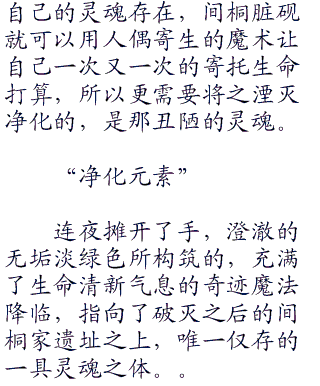 自己的灵魂存在，间桐脏砚
就可以用人偶寄生的魔术让
自己一次又一次的寄托生命
打算，所以更需要将之湮灭
净化的，是那丑陋的灵魂。
“净化元素”
连夜摊开了手，澄澈的
无垢淡绿色所构筑的，充满
了生命清新气息的奇迹魔法
降临，指向了破灭之后的间
桐家遗址之上，唯一仅存的
一具灵魂之体。。